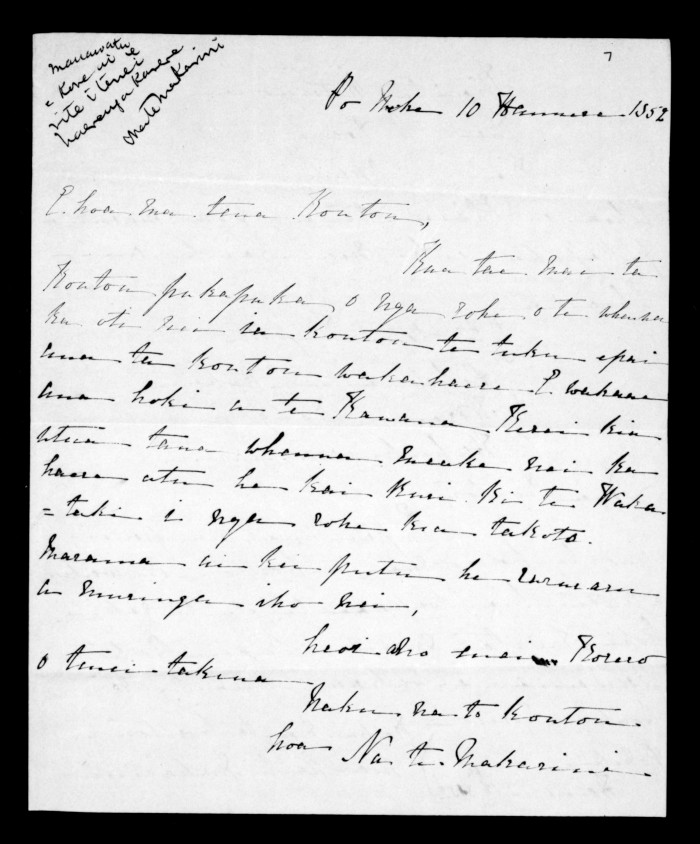 Manawatu
= Kore ui e
rite i tenei
haerenga Karere
na te Makarini
7
Po Neke 10 Hanuere 1852
E hoa ma tena Koutou,
Kua tae mai ta
Koutou pukapuka o nga rohe o te whenua
ka oti nei ia koutou te tuku epai
ana ta koutou wakahaere E wakaae
ana hoki a te Kawana Kerei kia
utua taua whenua meake nei ka
haere atu he kai Ruri ki te Waka
=taki i nga rohe kia takoto
marama ai kei puta he raruraru
a muringa iho nei,
heoi ano enei Korero
o tenei takiwa
Naku na to Koutou
hoa Na te Makarini